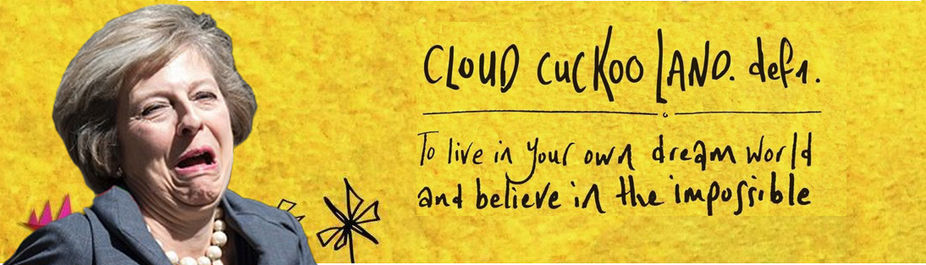 CLOUD CUCKOO LAND. def1.
To live in your own dream world
and believe in the impossible